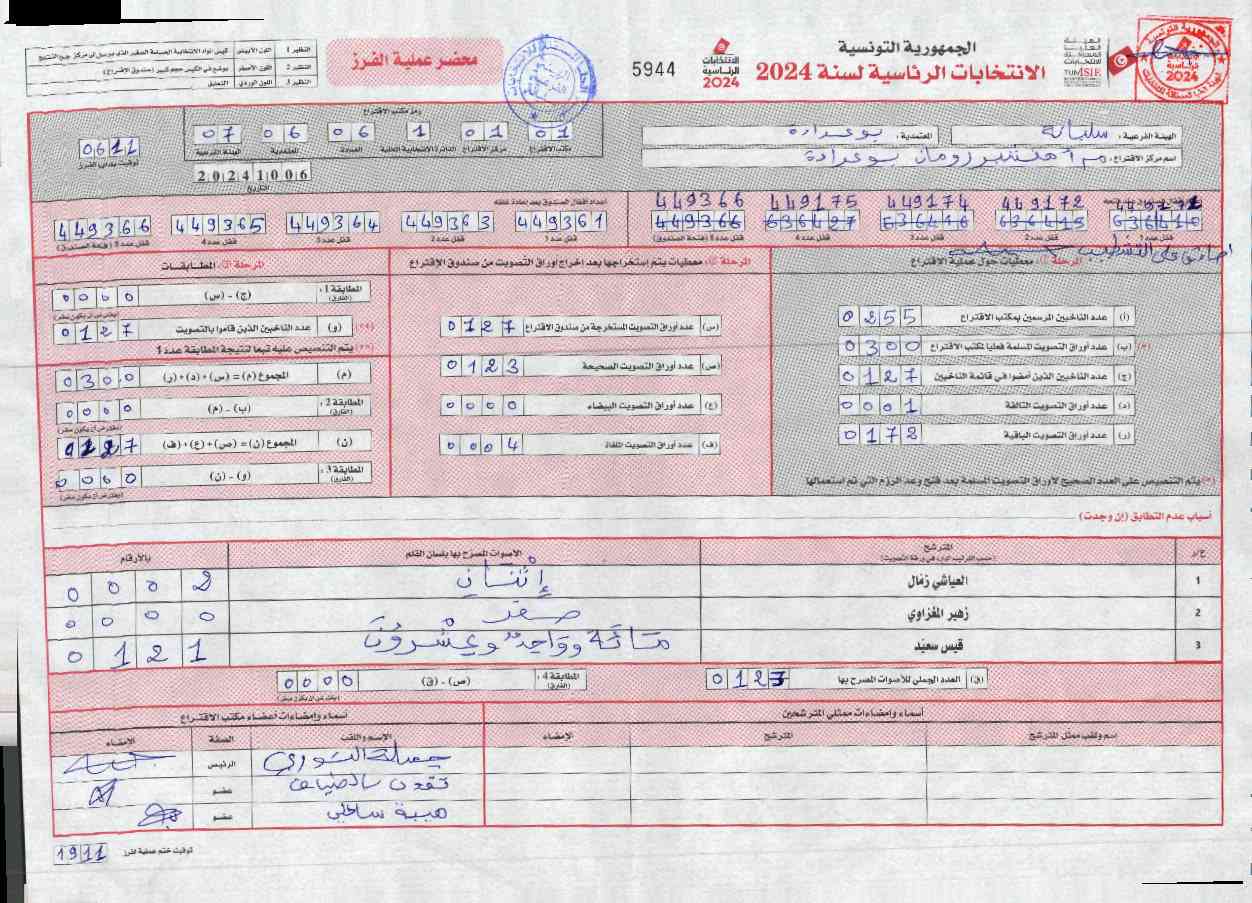 الجمهورية التونسية
الانتخابات الرئاسية لسنة 2024
الانتخابات الرئاسية 2024
5944
محضر عملية الفرز
النظير 1 اللون الأبيض
النظير 2 اللون الأصفر يوضع في الكيس حجم كبير (صندوق الاقتراع)
النظير 3 اللون الوردي التعليق
الهيئة الفرعية : سليانة
المعتمدية : بوعرادة
اسم مركز الاقتراع : بوعرادة
رمز مكتب الاقتراع
01 01 1 06 06 07
مكتب الاقتراع مركز الاقتراع الدائرة الانتخابية المحلية العمادة المعتمدية الهيئة الفرعية
20241006
التاريخ
0611
توقيت بداية الفرز
449175 449174 449172
449366 636427 636416 636415 636410
قفل عدد 5 (فتحة الصندوق) قفل عدد 4 قفل عدد 3 قفل عدد 2 قفل عدد 1
أعداد أقفال الصندوق بعد إعادة غلقه
449361 449363 449364 449365 449366
قفل عدد 1 قفل عدد 2 قفل عدد 3 قفل عدد 4 قفل عدد 5 (فتحة الصندوق)
معطيات حول عملية الاقتراع
(أ) عدد الناخبين المرسمين بمكتب الاقتراع 0255
(ب) عدد أوراق التصويت المسلمة فعليا لمكتب الاقتراع 0300
(ج) عدد الناخبين الذين أمضوا في قائمة الناخبين 0127
(د) عدد أوراق التصويت التالفة 0001
(ر) عدد أوراق التصويت الباقية 0172
(*) يتم التنصيص على العدد الصحيح لأوراق التصويت المسلمة بعد فتح وعد الرزم التي تم استعمالها
معطيات يتم إستخراجها بعد اخراج أوراق التصويت من صندوق الاقتراع
(س) عدد أوراق التصويت المستخرجة من صندوق الاقتراع 0127
(ص) عدد أوراق التصويت الصحيحة 0123
(ع) عدد أوراق التصويت البيضاء 0000
(ف) عدد أوراق التصويت الملغاة 0004
المطابقات
المطابقة 1 : (الفارق) (ج) - (س) 0000
(و) عدد الناخبين الذين قاموا بالتصويت 0127
(**) يتم التنصيص عليه تبعا لنتيجة المطابقة عدد 1
(م) المجموع (م) = (س) + (د) + (ر) 0300
المطابقة 2 : (الفارق) (ب) - (م) 0000
(ن) المجموع (ن) = (ص) + (ع) + (ف) 0127
المطابقة 3 : (الفارق) (و) - (ن) 0000
أسباب عدم التطابق (إن وجدت)
ع/ر المترشح الأصوات المصرح بها بلسان القلم بالأرقام
(حسب الترتيب الوارد في ورقة التصويت)
1 العياشي زمّال إثنان 0002
2 زهير المغزاوي صفر 0000
3 قيس سعيّد مائة وواحد وعشرون 0121
(ق) العدد الجملي للأصوات المصرح بها 0127
المطابقة 4 : (الفارق) (ص) - (ق) 0000
أسماء وإمضاءات ممثلي المترشحين
أسماء وإمضاءات أعضاء مكتب الاقتراع
اسم ولقب ممثل المترشح المترشح الإمضاء
الإسم واللقب الصفة الإمضاء
الرئيس
عضو
هيبة ساحلي عضو
توقيت ختم عملية الفرز 1911